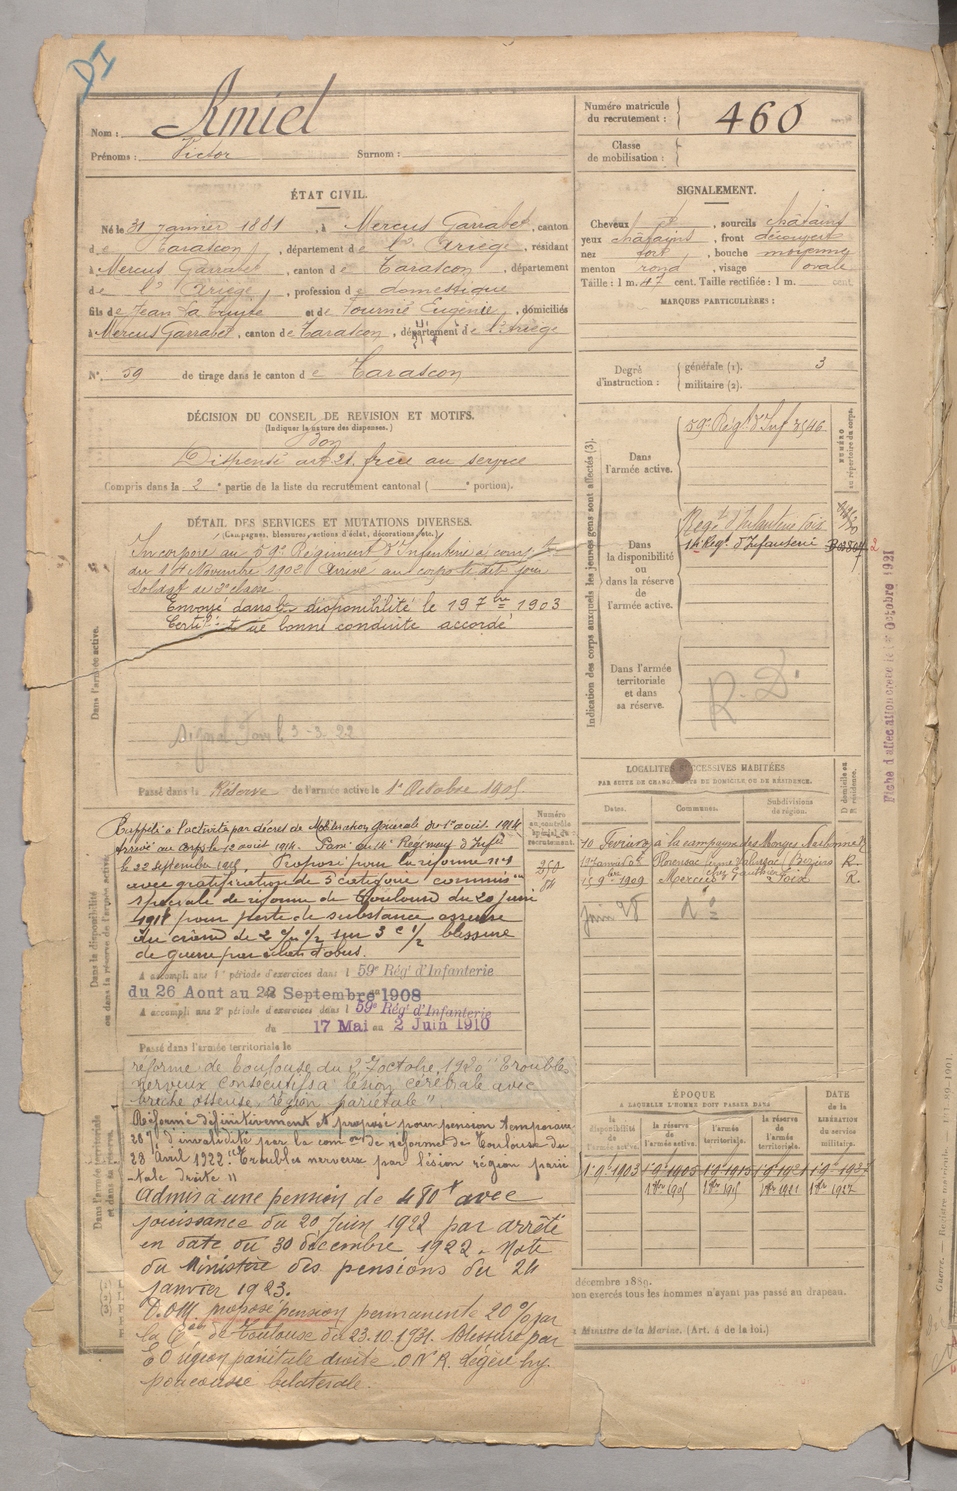 DI
Nom : Amiel
Prénoms : Victor Surnom :
Numéro matricule du recrutement : 460
Classe de mobilisation :
ÉTAT CIVIL.
Né le 31 Janvier 1881, à Mercus Garrabet, canton
de Tarascon, département de l'Ariège, résidant
à Mercus Garrabet, canton de Tarascon, département
de l'Ariège, profession de domestique
fils de Jean et de Eugénie, domiciliés
à Mercus Garrabet, canton de Tarascon, département de l'Ariège
N° 59 de tirage dans le canton de Tarascon
SIGNALEMENT.
Cheveux et, sourcils châtains
yeux châtains, front découvert
nez fort, bouche moyenne
menton rond, visage ovale
Taille : 1 m. 47 cent. Taille rectifiée : 1 m. cent.
MARQUES PARTICULIÈRES :
Degré d'instruction : générale (1). 3
militaire (2).
DÉCISION DU CONSEIL DE REVISION ET MOTIFS.
(Indiquer la nature des dispenses.)
Bon
Dispensé art 21. frère au service
Compris dans la 2e partie de la liste du recrutement cantonal ( e portion).
DÉTAIL DES SERVICES ET MUTATIONS DIVERSES.
(Campagnes, blessures, actions d'éclat, décorations, etc.)
Dans l'armée active.
Incorporé au 59e Régiment d'Infanterie à compter
du 14 Novembre 1902 Arrivé au corps le dit jour
soldat de 2e classe.
Envoyé dans la disponibilité le 19 7bre 1903
Certificat de bonne conduite accordé
3-3-22
Passé dans la Réserve de l'armée active le 1er Octobre 1905
Indication des corps auxquels les jeunes gens sont affectés (3).
NUMÉRO au répertoire du corps.
Dans l'armée active.
59e Régt d'Inf 3546
Dans la disponibilité ou dans la réserve de l'armée active.
Régt d'Infanterie Foix
14e Régt d'Infanterie
Dans l'armée territoriale et dans sa réserve.
R.D.
Fiche d'affectation créée le 1er Octobre 1921
LOCALITÉS SUCCESSIVES HABITÉES
PAR SUITE DE CHANGEMENTS DE DOMICILE OU DE RÉSIDENCE.
Dates. Communes. Subdivisions de région. D domicile ou R résidence.
10 Février à la campagne des Monges Narbonne R
Florensac Béziers R.
15 9bre 1909 Mercus Foix R.
Juin 28 do
Dans la disponibilité ou dans la réserve de l'armée active.
Numéro au contrôle spécial du recrutement.
Rappelé à l'activité par décret de Mobilisation générale du 1er août 1914
Arrivé au corps le 12 août 1914. Passé au 14e Régiment d'Inf
le 22 septembre 1915. Proposé pour la réforme n°1
avec gratification de 5e catégorie commission
spéciale de réforme de Toulouse du 20 juin
1918 pour perte de substance osseuse
du crâne de 2 c/m 1/2 sur 3 c 1/2 blessure
de guerre par éclats d'obus.
A accompli une 1re période d'exercices dans le 59e Rég' d'Infanterie
du 26 Aout au 22 Septembre 1908
A accompli une 2e période d'exercices dans le 59e Rég' d'Infanterie
du 17 Mai au 2 Juin 1910
Passé dans l'armée territoriale le
Dans l'armée territoriale et dans sa réserve.
réforme de Toulouse du 27 octobre 1920 "Troubles
nerveux consécutifs à lésion cérébrale avec
brèche osseuse région pariétale"
Réformé définitivement et proposé pour pension temporaire
20% d'invalidité par la comon de réforme de Toulouse du
28 avril 1922. "Troubles nerveux par lésion région parié
-tale droite"
Admis à une pension de 480f avec
jouissance du 20 Juin 1922 par arrêté
en date du 30 décembre 1922. Note
du Ministère des pensions du 24
janvier 1923.
D.OM. propose pension permanente 20% par
la Con de Toulouse du 23.10.1931. Blessure par
E O région pariétale droite. O.N.R. Légère hy-
poacousie bilatérale.
ÉPOQUE
A LAQUELLE L'HOMME DOIT PASSER DANS
la disponibilité de l'armée active. la réserve de l'armée active. l'armée territoriale. la réserve de l'armée territoriale.
DATE de la LIBÉRATION du service militaire.
1 9 1903 1 9 1905 1 9 1915 1 9 1921 1 9 1927
1 8bre 1905 1 8bre 1915 1 8bre 1921 1 8bre 1927
décembre 1889.
non exercés tous les hommes n'ayant pas passé au drapeau.
Ministre de la Marine. (Art. 4 de la loi.)